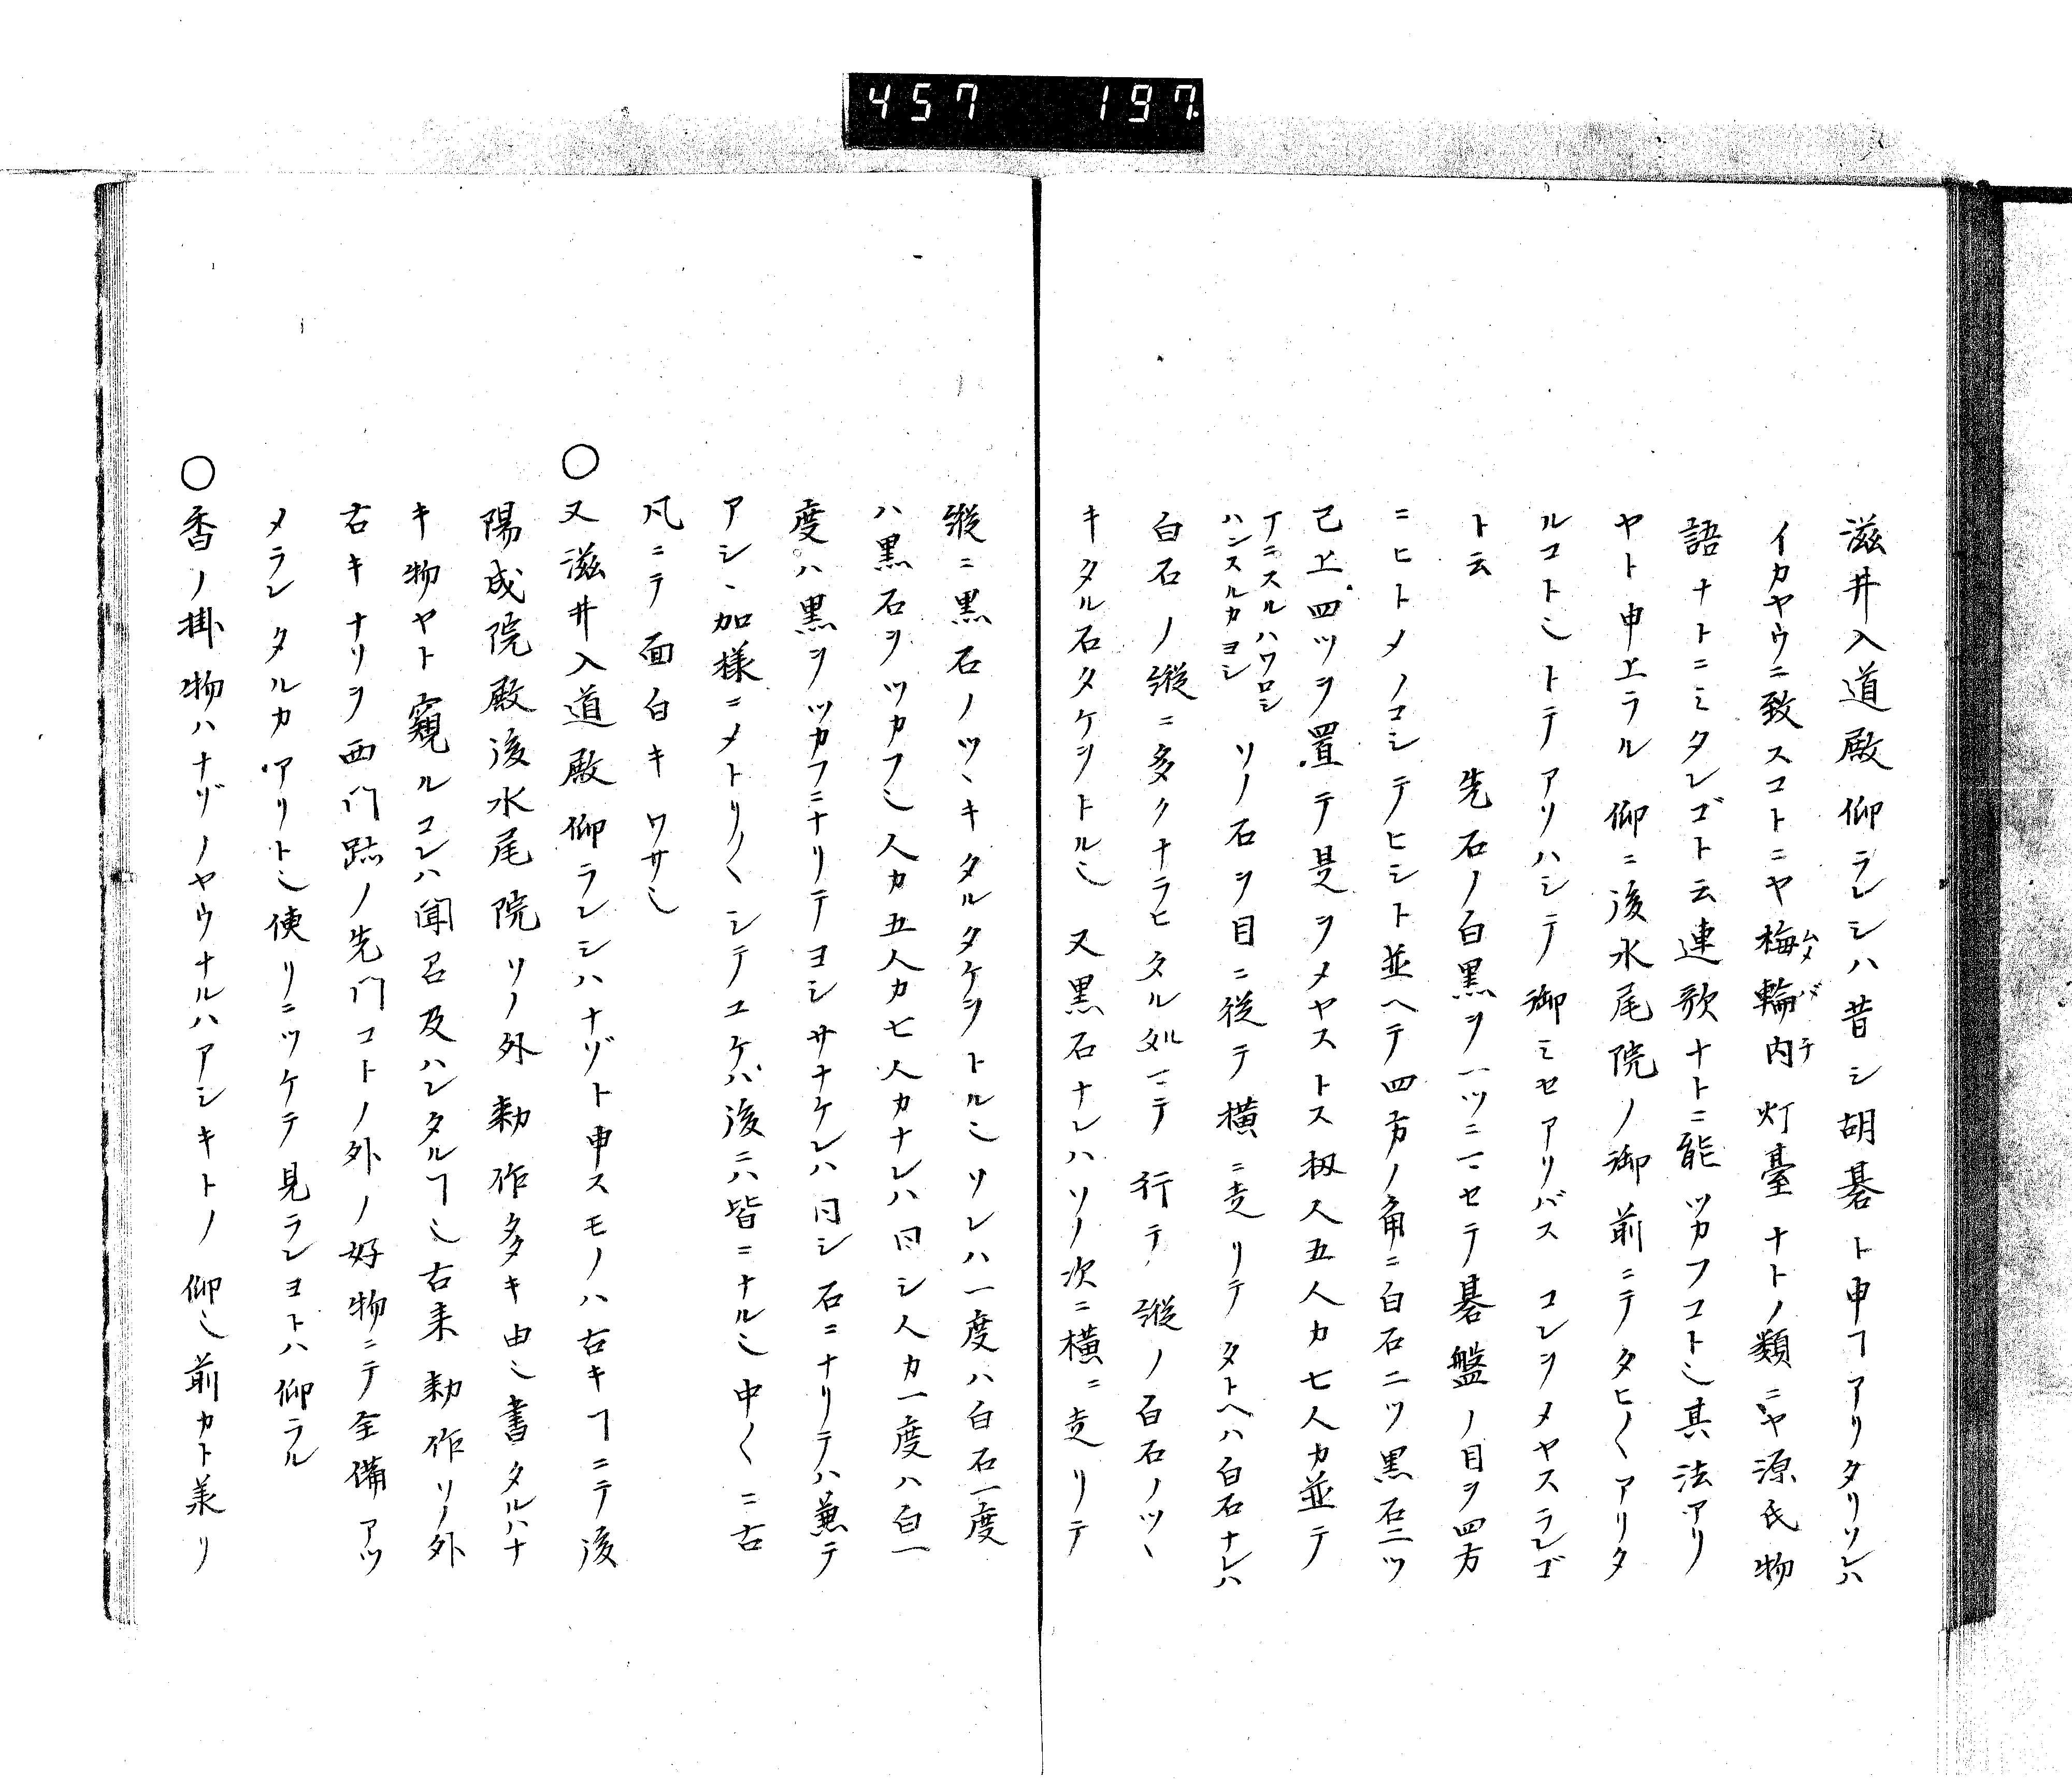 457 197
滋井入道殿仰ラレシハ昔シ胡碁ト申ヿアリタリソレハ
イカヤウニ致スコトニヤ梅輪内灯臺ナトノ類ニヤ源氏物
ムメバテ
語ナトニミタレゴト云連歌ナトニ能ツカフコト也其法アリ
ヤト申上ラル仰ニ後水尾院ノ御前ニテタヒ〱アリタ
ルコト也トテアソハシテ御ミセアリバスコレヲメヤスラレゴ
ト云 先石ノ白黒ヲ一ツニマセテ碁盤ノ目ヲ四方
ニヒトメノコシテヒシト並ヘテ四方ノ角ニ白石二ツ黒石二ツ
己上四ツヲ置テ是ヲメヤストス扨人五人カ七人カ並テ
丁ニスルハワロシ
ハンスルカヨシ
ソノ石ヲ目ニ從テ横ニ走リテタトヘハ白石ナレハ
白石ノ縱ニ多クナラヒタル処ニテ行テ縱ノ白石ノツヽ
キタル石タケヲトル也又黒石ナレハソノ次ニ横ニ走リテ
縱ニ黒石ノツヽキタルタケヲトル也ソレハ一度ハ白石一度
ハ黒石ヲツカフ也人カ五人カ七人カナレハ同シ人カ一度ハ白一
度ハ黒ヲツカフニナリテヨシサナケレハ同シ石ニナリテハ兼テ
アシヽ加様ニメトリ〱シテユケバ後ニハ皆ニナル也中〱ニ古
凡ニテ面白キワサ也
〇又滋井入道殿仰ラレシハナゾト申スモノハ古キヿニテ後
陽成院殿後水尾院ソノ外勅作多キ由也書タルハナ
キ物ヤト窺ルコレハ聞召及ハレタルヿ也古来勅作ソノ外
古キナソヲ西門跡ノ先門コトノ外ノ好物ニテ全備アツ
メラレタルカアリト也便リニツケテ見ラレヨトハ仰ラル
〇香ノ掛物ハナゾノヤウナルハアシキトノ仰也前カト美リ